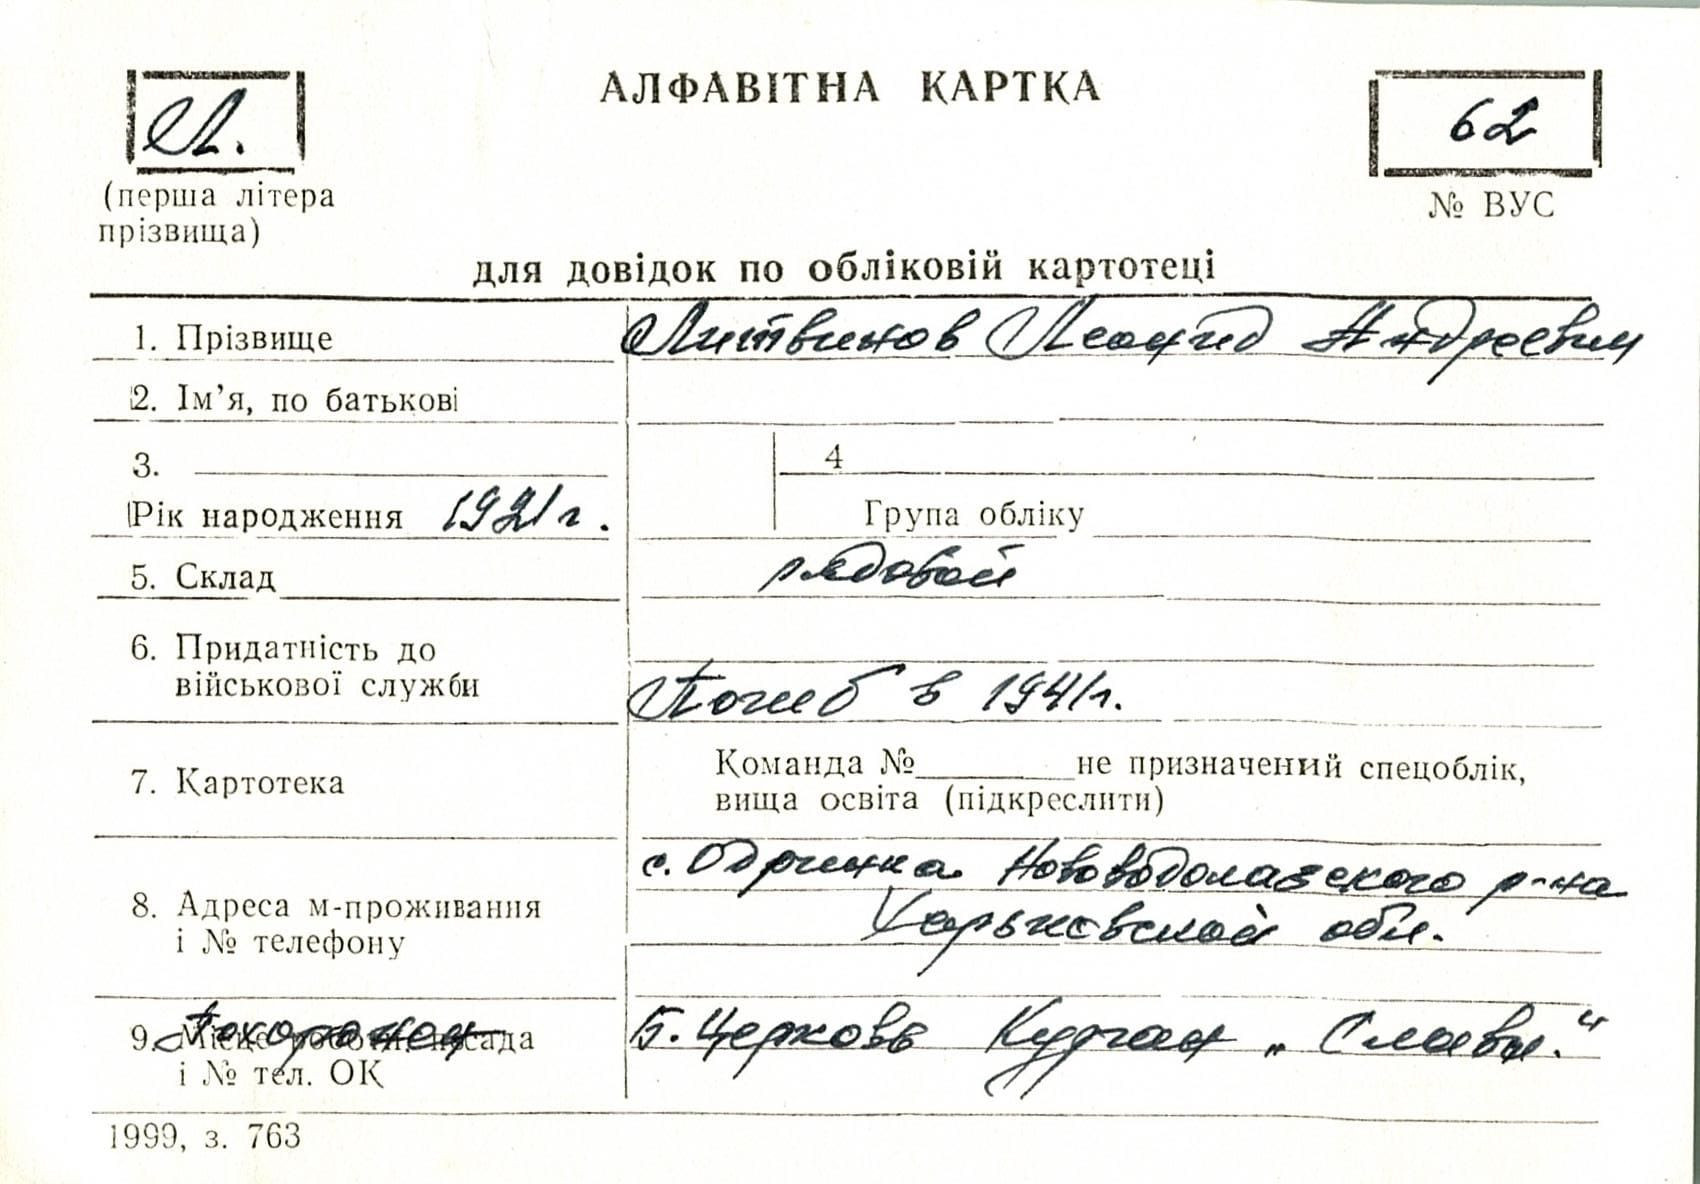 АЛФАВІТНА КАРТКА
Л.
62
(перша літера
прізвища)
№ ВУС
для довідок по обліковій картотеці
1. Прізвище Литвинов Леонид Андреевич
2. Ім’я, по батькові
3.
4
Рік народження 1921 г.
Група обліку
5. Склад рядовой
6. Придатність до
військової служби Погиб в 1941г.
7. Картотека
Команда №______не призначений спецоблік,
вища освіта (підкреслити)
с. Одринка Нововодолазского р-на
8. Адреса м-проживання
і № телефону
Харьковской обл.
9. Похоронен Б. Церковь Курган „Славы.“
і № тел. ОК
1999, з. 763